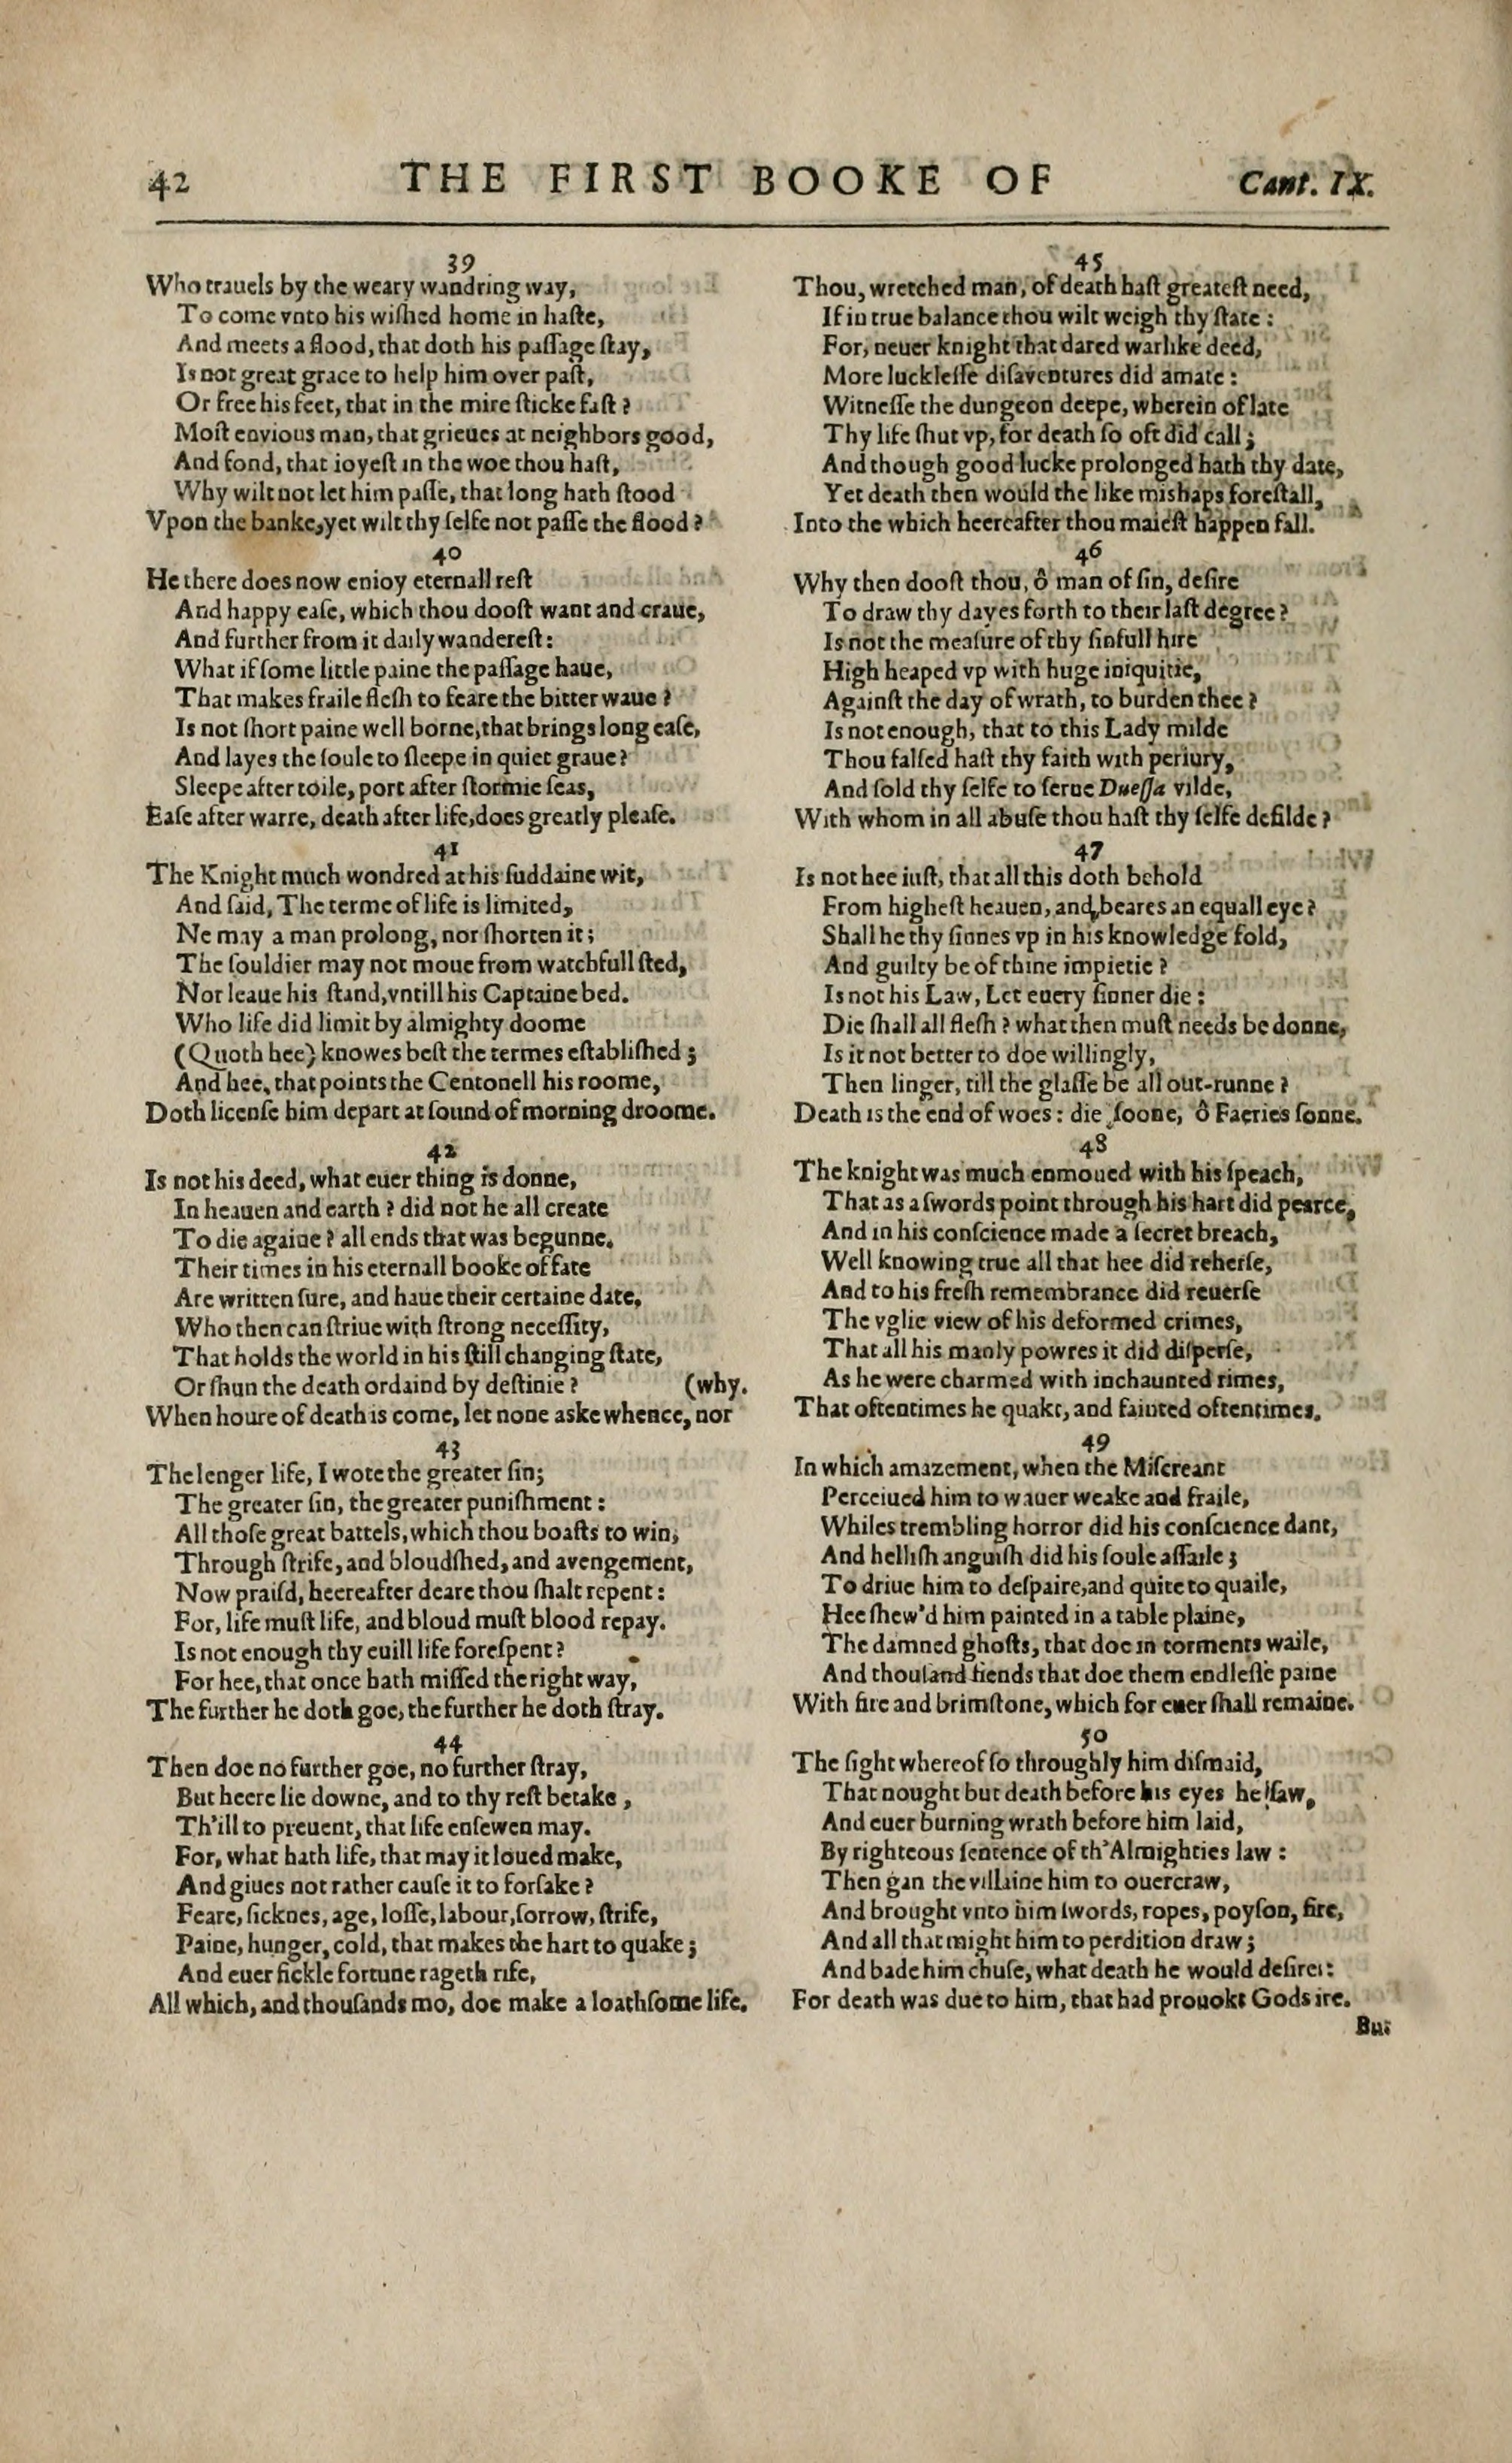 42 THE FIRST BOOKE OF Cant. IX.
39
Who trauels by the weary wandring way,
To come vnto his wiſhed home in haſte,
And meets a flood, that doth his paſſage ſtay,
Is not great grace to help him over paſt,
Or free his feet, that in the mire ſticke faſt?
Moſt envious man, that grieues at neighbors good,
And fond, that ioyeſt in the woe thou haſt,
Why wilt not let him paſſe, that long hath ſtood
Vpon the banke, yet wilt thy ſelfe not paſſe the flood?
40
He there does now enioy eternall reſt
And happy eaſe, which thou dooſt want and craue,
And further from it daily wandereſt:
What if ſome little paine the paſſage haue,
That makes fraile fleſh to feare the bitter waue?
Is not ſhort paine well borne, that brings long eaſe,
And layes the ſoule to ſleepe in quiet graue?
Sleepe after toile, port after ſtormie ſeas,
Eaſe after warre, death after life, does greatly pleaſe.
41
The Knight much wondred at his ſuddaine wit,
And ſaid, The terme of life is limited,
Ne may a man prolong, nor ſhorten it;
The ſouldier may not moue from watchfull ſted,
Nor leaue his ſtand, vntill his Captaine bed.
Who life did limit by almighty doome
(Quoth hee) knowes beſt the termes eſtabliſhed;
And hee, that points the Centonell his roome,
Doth licenſe him depart at ſound of morning droome.
42
Is not his deed, what euer thing is donne,
In heauen and earth? did not he all create
To die againe? all ends that was begunne.
Their times in his eternall booke of fate
Are written ſure, and haue their certaine date.
Who then can ſtriue with ſtrong neceſſity,
That holds the world in his ſtill changing ſtate,
Or ſhun the death ordaind by deſtinie? (why.
When houre of death is come, let none aske whence, nor
43
The lenger life, I wote the greater ſin;
The greater ſin, the greater puniſhment:
All thoſe great battels, which thou boaſts to win,
Through ſtrife, and bloudſhed, and avengement,
Now praiſd, heereafter deare thou ſhalt repent:
For, life muſt life, and bloud muſt blood repay.
Is not enough thy euill life foreſpent?
For hee, that once hath miſſed the right way,
The further he doth goe, the further he doth ſtray.
44
Then doe no further goe, no further ſtray,
But heere lie downe, and to thy reſt betake,
Th'ill to preuent, that life enſewen may.
For, what hath life, that may it loued make,
And giues not rather cauſe it to forſake?
Feare, ſicknes, age, loſſe, labour, ſorrow, ſtrife,
Paine, hunger, cold, that makes the hart to quake;
And euer fickle fortune rageth rife,
All which, and thouſands mo, doe make a loathſome life.
45
Thou, wretched man, of death haſt greateſt need,
If in true balance thou wilt weigh thy ſtate:
For, neuer knight that dared warlike deed,
More luckleſſe diſaventures did amate:
Witneſſe the dungeon deepe, wherein of late
Thy life ſhut vp, for death ſo oft did call;
And though good lucke prolonged hath thy date,
Yet death then would the like mishaps foreſtall,
Into the which heereafter thou maieſt happen fall.
46
Why then dooſt thou, ô man of ſin, deſire
To draw thy dayes forth to their laſt degree?
Is not the meaſure of thy ſinfull hire
High heaped vp with huge iniquitie,
Againſt the day of wrath, to burden thee?
Is not enough, that to this Lady milde
Thou falſed haſt thy faith with periury,
And ſold thy ſelfe to ſerue Dueſſa vilde,
With whom in all abuſe thou haſt thy ſelfe defilde?
47
Is not hee iuſt, that all this doth behold
From higheſt heauen, and beares an equall eye?
Shall he thy ſinnes vp in his knowledge fold,
And guilty be of thine impietie?
Is not his Law, Let euery ſinner die:
Die ſhall all fleſh? what then muſt needs be donne,
Is it not better to doe willingly,
Then linger, till the glaſſe be all out-runne?
Death is the end of woes: die ſoone, ô Faeries ſonne.
48
The knight was much enmoued with his ſpeach,
That as a ſwords point through his hart did pearce,
And in his conſcience made a ſecret breach,
Well knowing true all that hee did reherſe,
And to his freſh remembrance did reuerſe
The vglie view of his deformed crimes,
That all his manly powres it did diſperſe,
As he were charmed with inchaunted rimes,
That oftentimes he quakt, and fainted oftentimes.
49
In which amazement, when the Miſcreant
Perceiued him to wauer weake and fraile,
Whiles trembling horror did his conſcience dant,
And helliſh anguiſh did his ſoule aſſaile;
To driue him to deſpaire, and quite to quaile,
Hee ſhew'd him painted in a table plaine,
The damned ghoſts, that doe in torments waile,
And thouſand fiends that doe them endleſſe paine
With fire and brimſtone, which for euer ſhall remaine.
50
The ſight whereof ſo throughly him diſmaid,
That nought but death before his eyes he ſaw,
And euer burning wrath before him laid,
By righteous ſentence of th'Almighties law:
Then gan the villaine him to ouercraw,
And brought vnto him ſwords, ropes, poyſon, fire,
And all that might him to perdition draw;
And bade him chuſe, what death he would deſire:
For death was due to him, that had prouokt Gods ire.
But